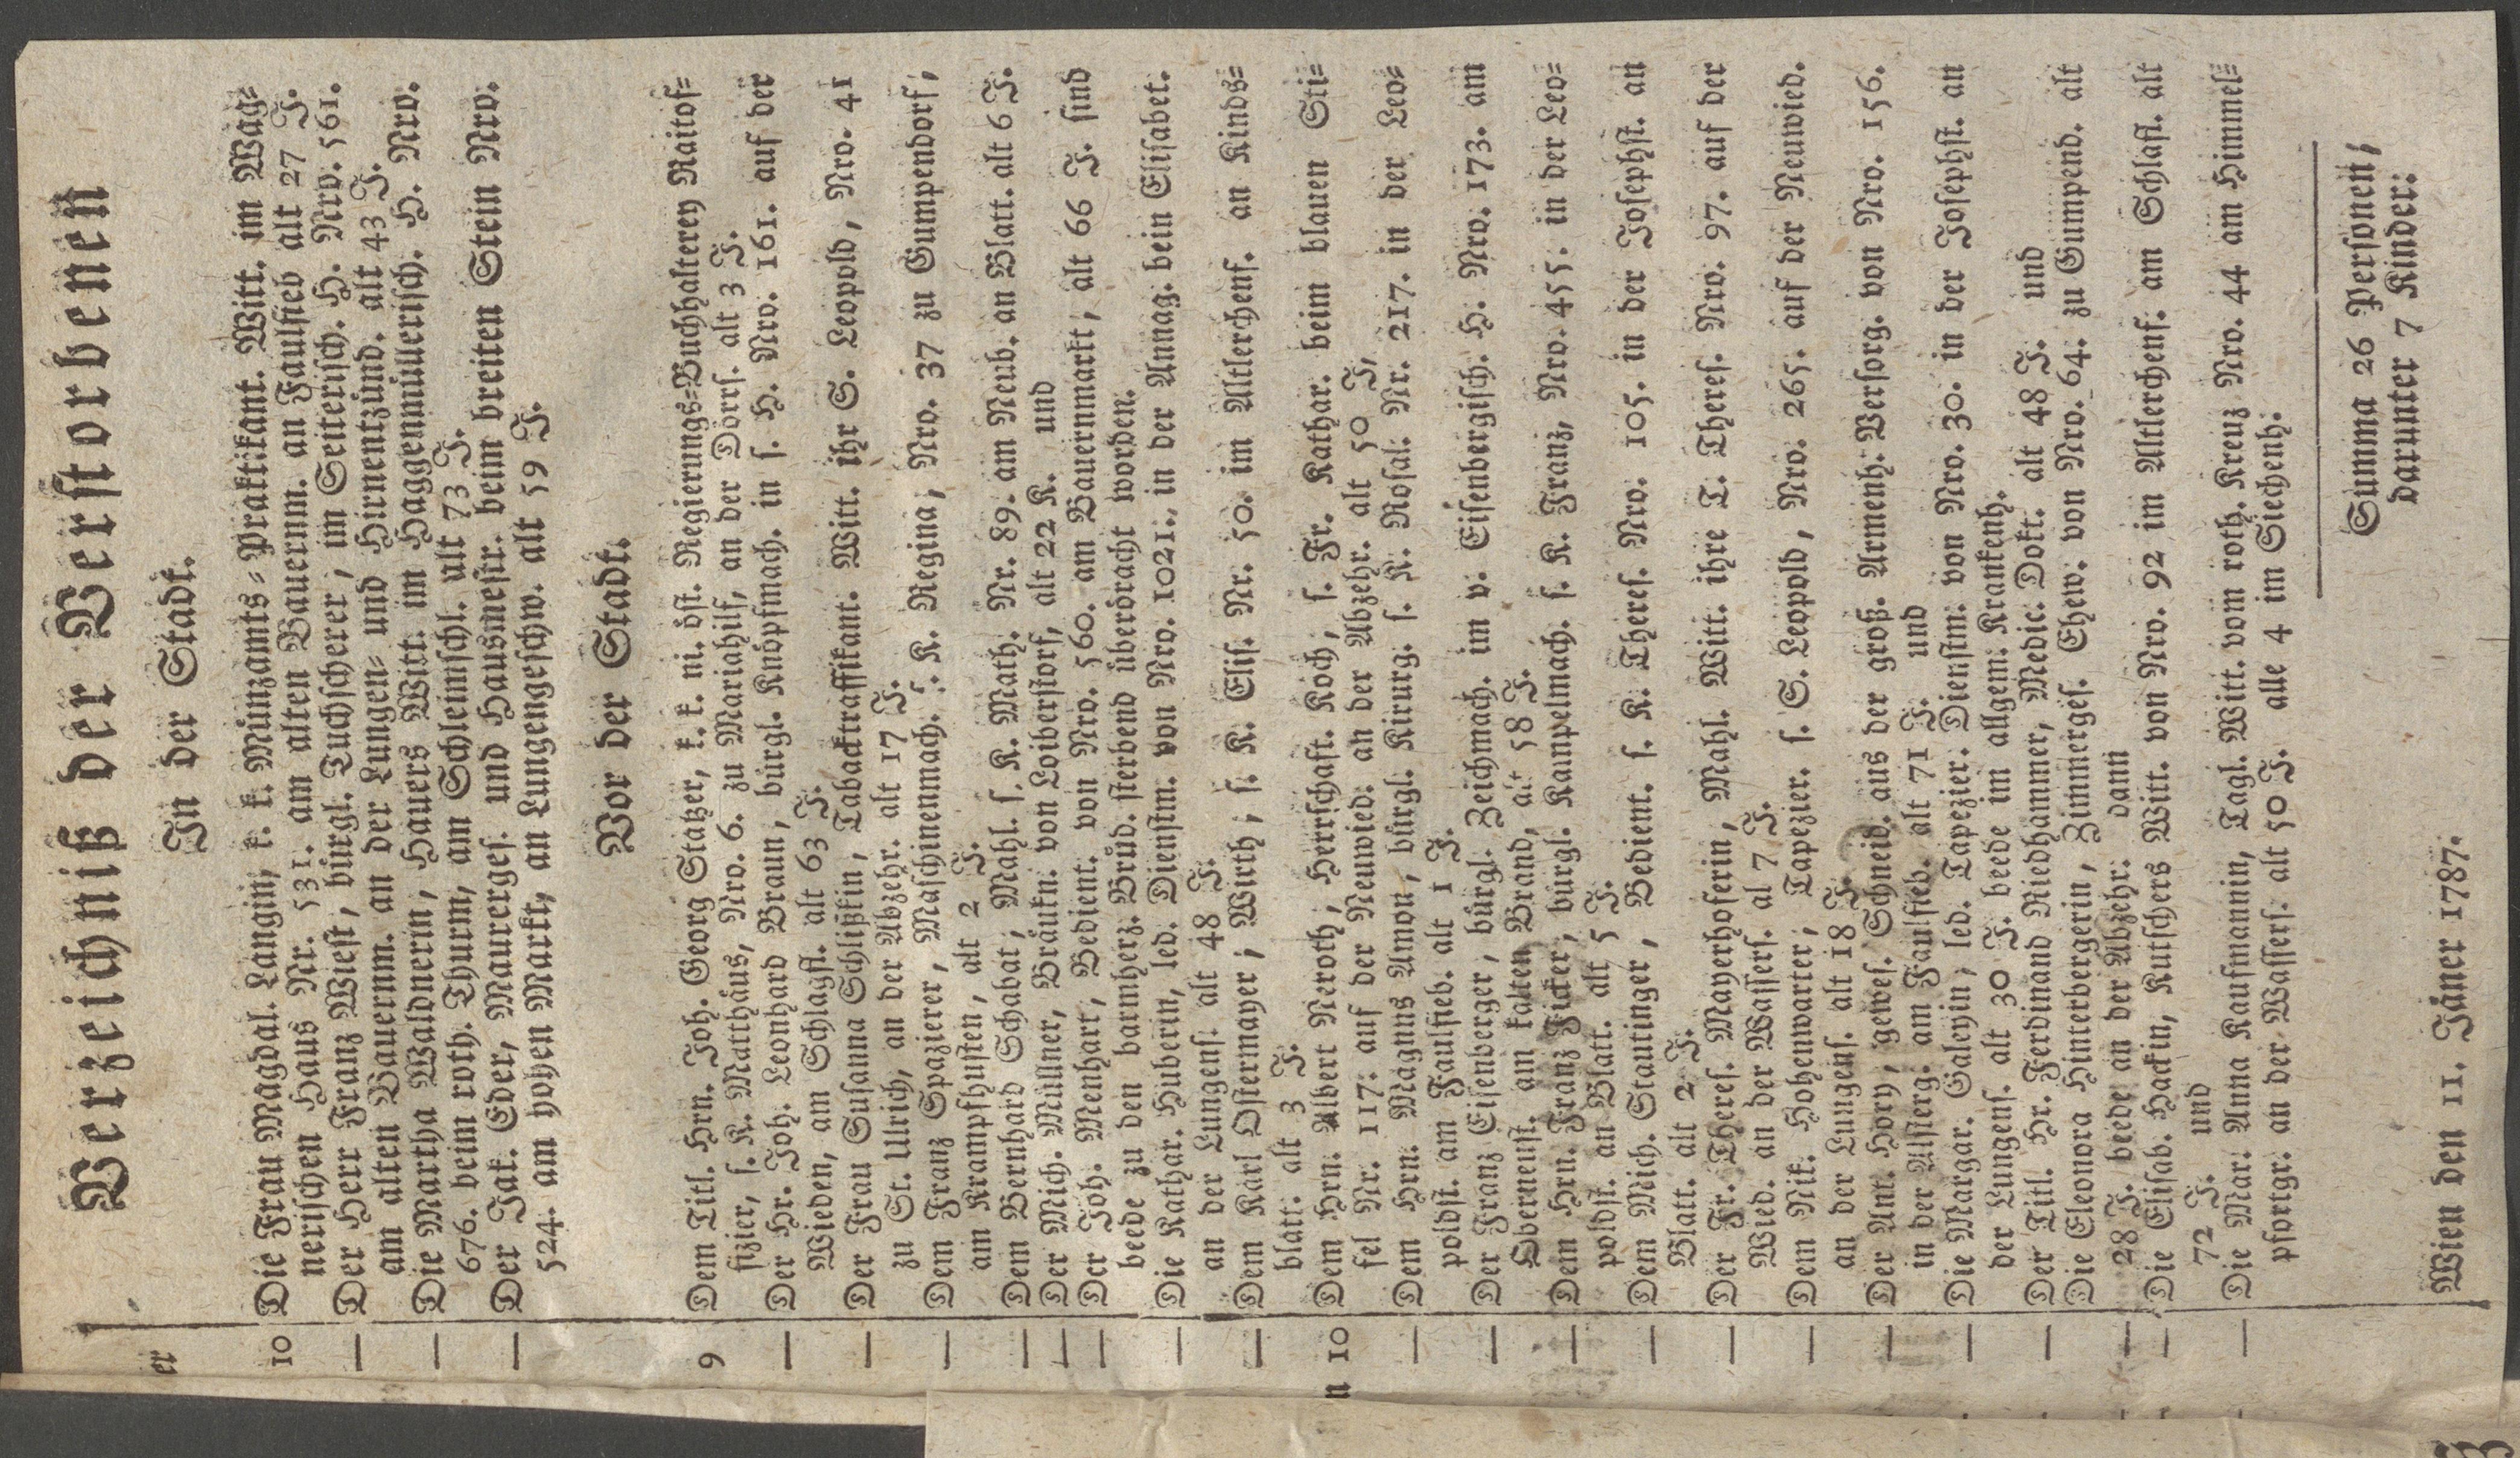 Verzeichniß der Verstorbenen
In der Stadt.
er
10 Die Frau Magdal. Langin, k. k. Münzamts-Praktikant. Witt. im Wag-
nerischen Haus Nr. 531. am alten Bauernm. an Faulfieb alt 27 J.
— Der Herr Franz Wiest, bürgl. Tuchscherer, im Seiterisch. H. Nro. 561.
am alten Bauernm. an der Lungen- und Hirnentzünd. alt 43 J.
— Die Martha Waldnerin, Hauers Witt. im Haggenmüllerisch. H. Nro.
676. beim roth. Thurm, am Schleimschl. alt 73 J.
— Der Jak. Eder, Maurerges. und Hausmestr. beim breiten Stein Nro.
524. am hohen Markt, an Lungengeschw. alt 59 J.
Vor der Stadt.
9 Dem Titl. Hrn. Joh. Georg Statzer, k. k. ni. öst. Regierungs-Buchhalterey Raitof-
fizier, s. K. Matthäus, Nro. 6. zu Mariahilf, an der Dörrs. alt 3 J.
— Der Hr. Joh. Leonhard Braun, bürgl. Knöpfmach. in s. H. Nro. 161. auf der
Wieden, am Schlagfl. alt 63 J.
— Der Frau Susanna Schlißkin, Tabacktraffikant. Witt. ihr S. Leopold, Nro. 41
zu St. Ulrich, an der Abzehr. alt 17 J.
— Dem Franz Spazierer, Maschinenmach. s. K. Regina, Nro. 37 zu Gumpendorf,
am Krampfhusten, alt 2 J.
— Dem Bernhard Schabat, Mahl. s. K. Math. Nr. 89. am Neub. an Blatt. alt 6 J.
— Der Mich. Müllner, Bräukn. von Loiberstorf, alt 22 K. und
— Der Joh. Menhart, Bedient. von Nro. 560. am Bauernmarkt, alt 66 J. sind
beede zu den barmherz. Brüd. sterbend überdracht worden.
— Die Kathar. Huberin, led. Dienstm. von Nro. 1021., in der Annag. bein Elisabet.
an der Lungens. alt 48 J.
— Dem Karl Ostermayer, Wirth, s. K. Elis. Nr. 50. im Altlerchenf. an Kinds-
blatt. alt 3 J.
n 10 Dem Hrn. Albert Neroth, Herrschaft. Koch, s. Fr. Kathar. beim blauen Sti-
fel Nr. 117. auf der Neuwied. an der Abzehr. alt 50 J,
— Dem Hrn. Magnus Amon, bürgl. Kirurg. s. K. Rosal. Nr. 217. in der Leo-
poldst. am Faulfieb. alt 1 J.
— Der Franz Eisenberger, bürgl. Zeichmach. im v. Eisenbergisch. H. Nro. 173. am
Oberneust. am kalten Brand, alt 58 J.
— Dem Hrn. Franz Ficker, bürgl. Kampelmach. s. K. Franz, Nro. 455. in der Leo-
poldst. an Blatt. alt 5 J.
— Dem Mich. Stautinger, Bedient. s. K. Theres. Nro. 105. in der Josephst. an
Blatt. alt 2 J.
— Der Fr. Theres. Mayerhoferin, Mahl. Witt. ihre T. Theres. Nro. 97. auf der
Wied. an der Wassers. al 7 J.
— Dem Nik. Hohenwarter, Tapezier. s. S. Leopold, Nro. 265. auf der Neuwied.
an der Lungens. alt 18 J.
— Der Ant. Hory, gewes. Schneid. aus der groß. Armenh. Versorg. von Nro. 156.
in der Alsterg. am Faulfieb. alt 71 J. und
— Die Margar. Galeyin, led. Tapezier. Dienstm. von Nro. 30. in der Josephst. an
der Lungens. alt 30 J. beede im allgem. Krankenh.
— Der Titl. Hr. Ferdinand Riedhammer, Medic. Dokt. alt 48 J. und
Die Eleonora Hinterbergerin, Zimmerges. Ehew. von Nro. 64. zu Gumpend. alt
— 28 J. beede an der Abzehr. dann
— Die Elisab. Hackin, Kutschers Witt. von Nro. 92 im Altlerchenf. am Schlafl. alt
72 J. und
— Die Mar. Anna Kaufmannin, Tagl. Witt. vom roth. Kreuz Nro. 44 am Himmel-
pfortgr. an der Wassers. alt 50 J. alle 4 im Siechenh.
Summa 26 Personen,
darunter 7 Kinder:
Wien den 11. Jäner 1787.